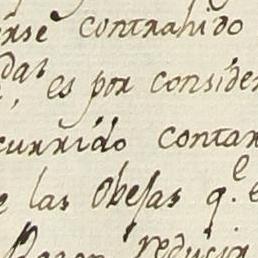 erse contrahido
das, es por consider
currido contar
e las Obejas q.e e
Razon reducir